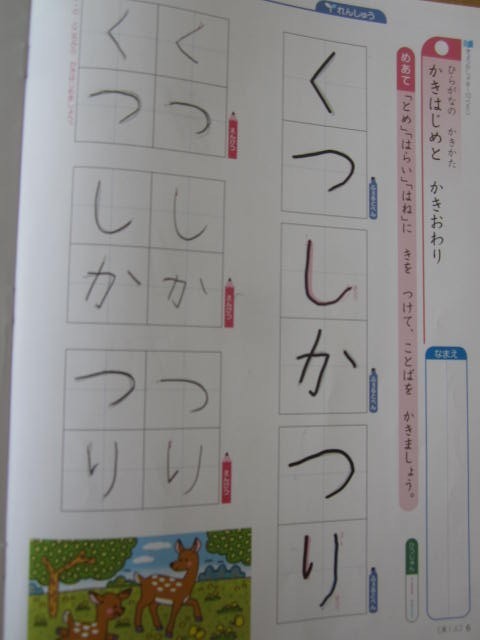 ひらがなの かきかた
かきはじめと かきおわり
なまえ
めあて
「とめ」「はらい」「はね」に きを つけて、ことばを かきましょう。
れんしゅう
くつ
しか
つり
くつ
くつ
えんぴつ
しか
しか
えんぴつ
つり
つり
えんぴつ
6